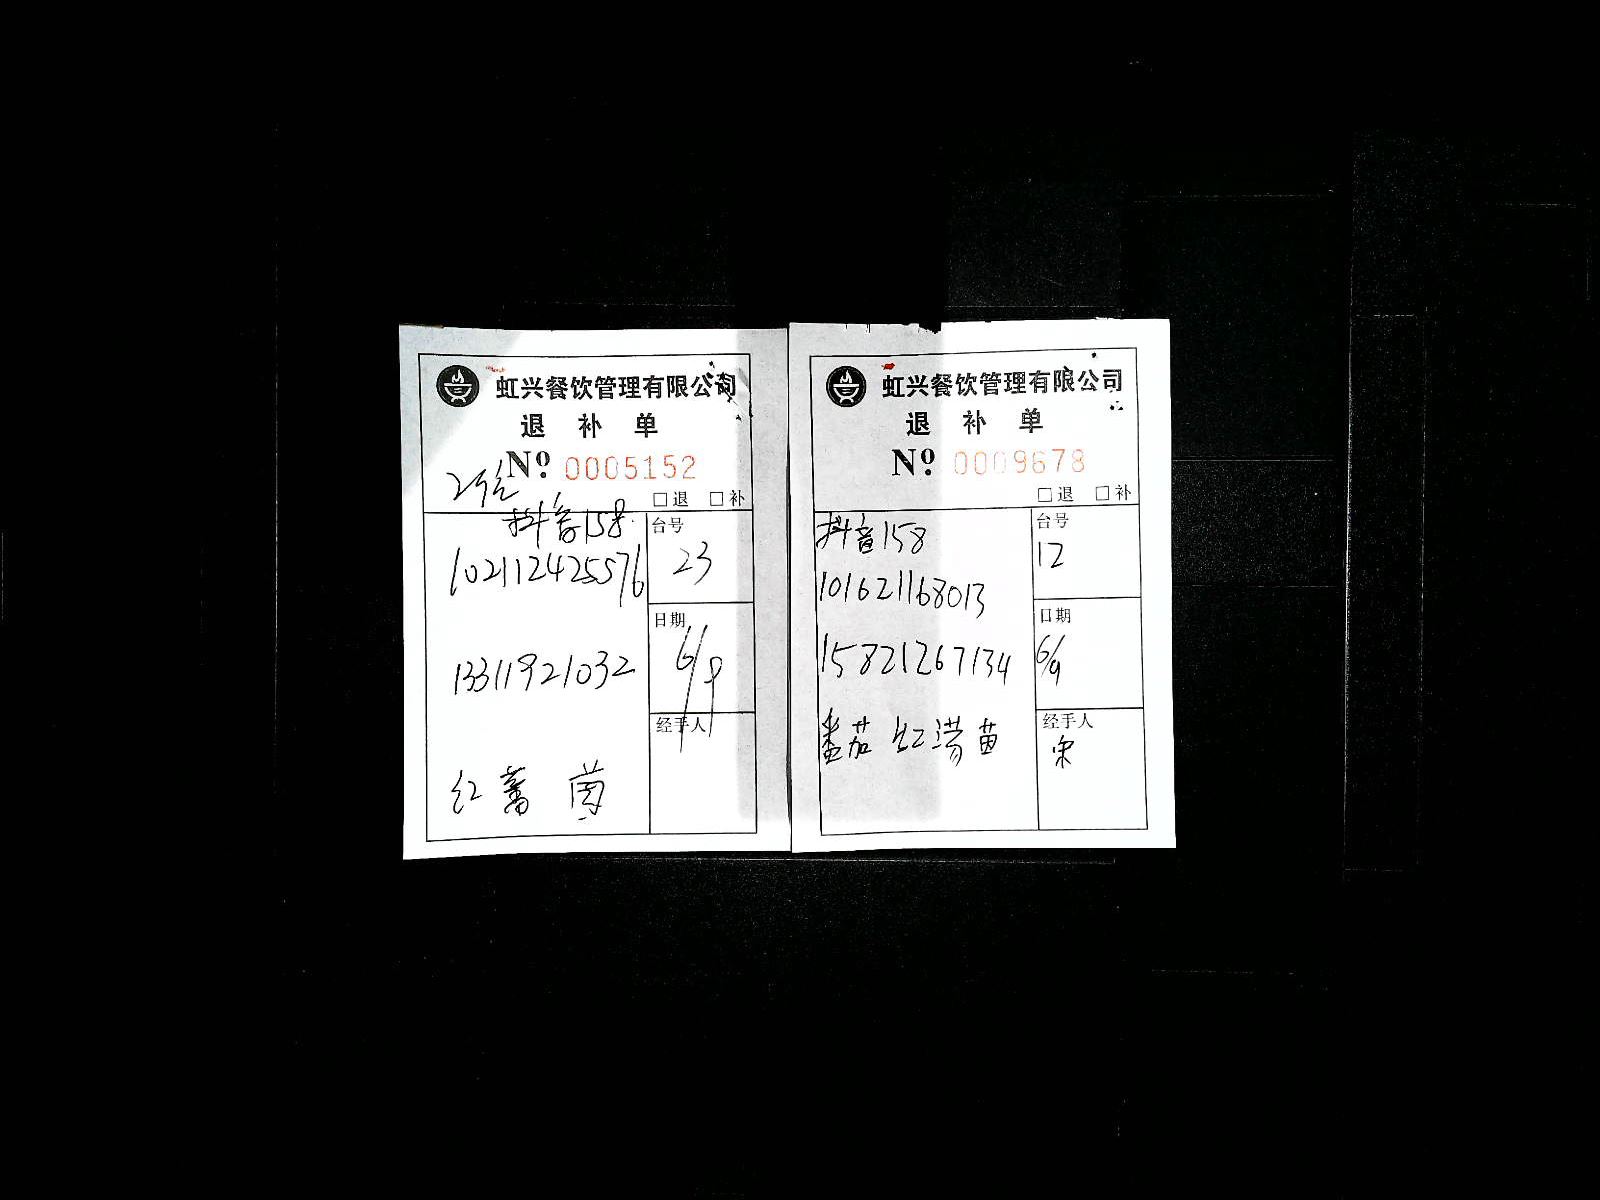 虹兴餐饮管理有限公司
退 补 单
Nº. 0005152
□退 □补
抖音158
102112425576
13311921032
红
台号
23
日期
6/9
经手人
虹兴餐饮管理有限公司
退 补 单
Nº. 0009678
□退 □补
抖音158
101621168013
15821267134
番茄 红 苗
台号
12
日期
6/9
经手人
宋